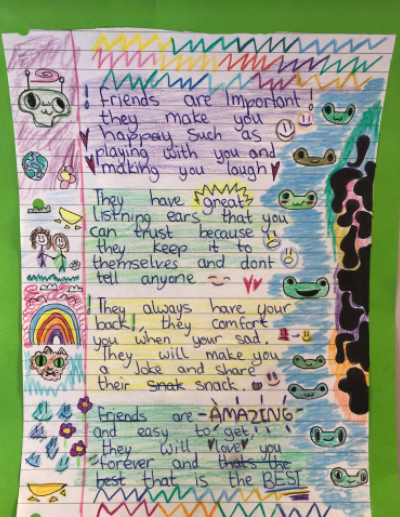 ! Friends are Important !
they make you
happey such as
playing with you and
making you laugh
They have great
listning ears that you
can trust because
they keep it to
themselves and dont
tell anyone
! They always have your
back!, they comfort
you when your sad.
They will make you
a Joke and share
their snak snack.
Friends are -AMAZING-
and easy to get,
they will "love" you
forever and thats the
best that is the BEST